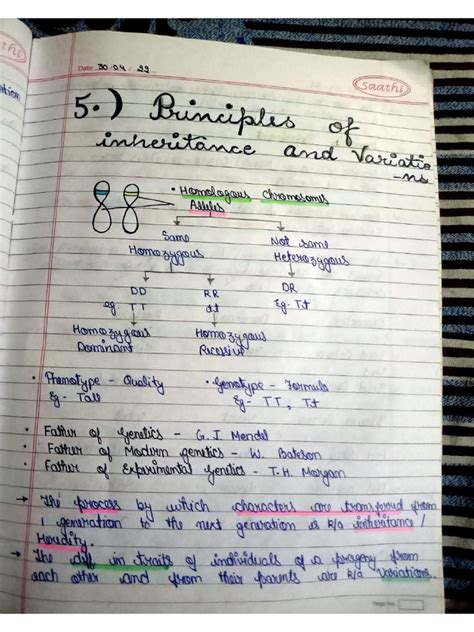 Date 30/04/22
Saathi
5.) Principles of
inheritance and Variatio
-ns
• Homologous Chromosomes
Alleles
Same Not same
Homozygous Heterozygous
DD RR DR
eg. TT tt Eg. Tt
Homozygous Homozygous
Dominant Recessive
• Phenotype - Quality • Genotype - Formula
Eg - Tall Eg - TT, Tt
• Father of Genetics - G. J. Mendel
• Father of Modern genetics - W. Bateson
• Father of Experimental Genetics - T.H. Morgan
→ The process by which characters are transferred from
1 generation to the next generation is k/a inheritance /
Heridity.
→ The diff in traits of individuals of a progeny from
each other and from their parents are k/a Variations.
Page No.